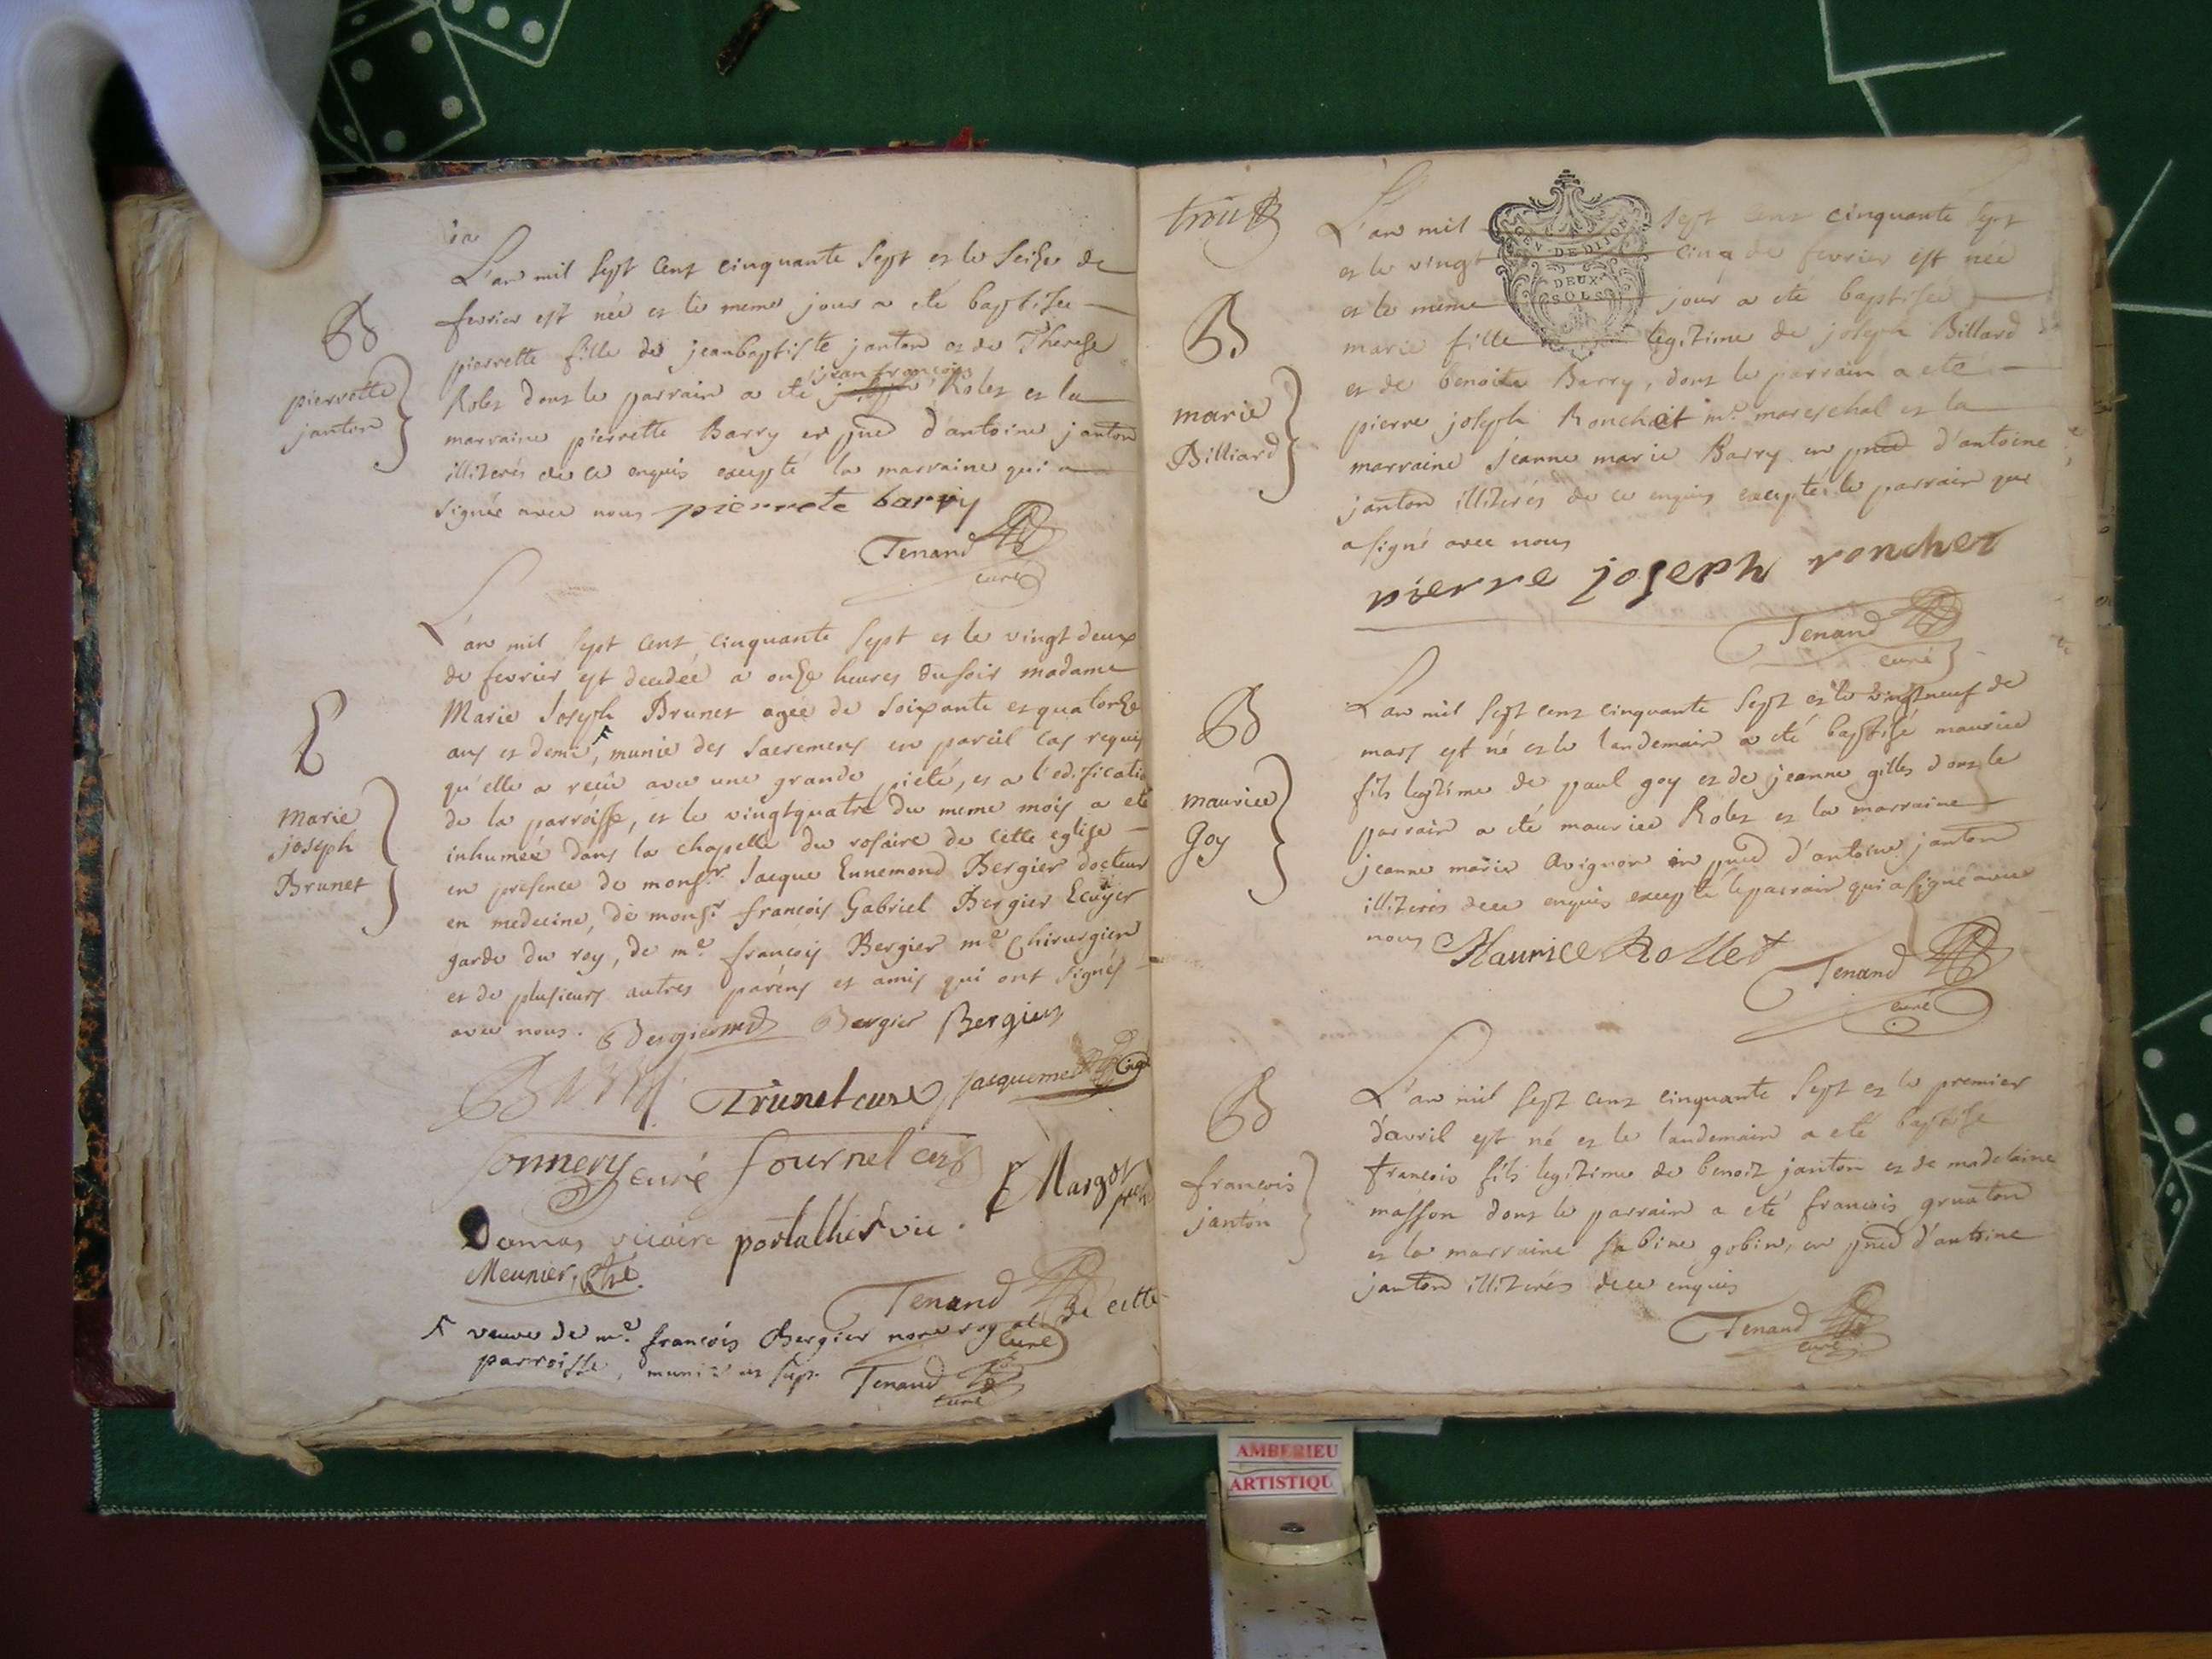 L'an mil sept cent cinquante sept et le seize de
fevrier est née et le meme jour a eté baptisée
pierrette fille de jeanbaptiste janton et de Therese
jean françois
Rolet dont le parrain a eté Rolet et la
marraine pierrette Barry en pnce d'antoine janton
illiterés de ce enquis excepté la marraine qui a
signée avec nous pierrete barry
Tenand
curé
B
pierrette
janton
L'an mil sept cent cinquante sept et le vingt deux
de fevrier est decedée a onze heures du soir madame
Marie Joseph Brunet agee de soixante et quatorze
ans et demi, munie des sacremens en pareil cas requis
qu'elle a reçu avec une grande pieté, et a l'edificatio
de la parroisse, et le vingtquatre du meme mois a eté
inhumée dans la chapelle du rosaire de cette eglise
en presence de monsr Jacque Ennemond Bergier docteur
en medecine, de monsr françois Gabriel Bergier Ecuyer
garde du roy, de me françois Bergier me Chirurgien
et de plusieurs autres parens et amis qui ont signés
avec nous. Bergier md Bergier Bergier
Trunel curé Jacquemet
sonnery curé fournel curé
E Margot
Damas vicaire portallier vic.
Meunier, ptre.
Tenand
curé
veuve de me françois Bergier nore royal de cette
parroisse, munie ut sup. Tenand
curé
S
marie
joseph
Brunet
trois
L'an mil sept cent cinquante sept
et le vingt cinq de fevrier est née
et le meme jour a eté baptisée
marie fille legitime de joseph Billard
et de benoite Barry, dont le parrain a eté
pierre joseph Ronchet me mareschal et la
marraine jeanne marie Barry en pnce d'antoine
janton illiterés de ce enquis exceptés le parrain qui
a signé avec nous
pierre joseph roncher
Tenand
curé
GEN. DE DIJON
DEUX
SOLS
B
marie
Billiard
L'an mil sept cent cinquante sept et le vingtneuf de
mars est né et le landemain a eté baptisé maurice
fils legitime de paul goy et de jeanne gilles dont le
parrain a eté maurice Rolet et la marraine
jeanne marie Avignon en pnce d'antoine janton
illiterés de ce enquis excepté le parrain qui a signé avec
nous Maurice Rollet Tenand
curé
B
maurice
Goy
L'an mil sept cent cinquante sept et le premier
d'avril est né et le landemain a eté baptisé
françois fils legitime de benoit janton et de madelaine
masson dont le parrain a eté francois gruaton
et la marraine sabine gobin, en pnce d'antoine
janton illiterés de ce enquis
Tenand
curé
B
francois
janton
AMBERIEU
ARTISTIQU